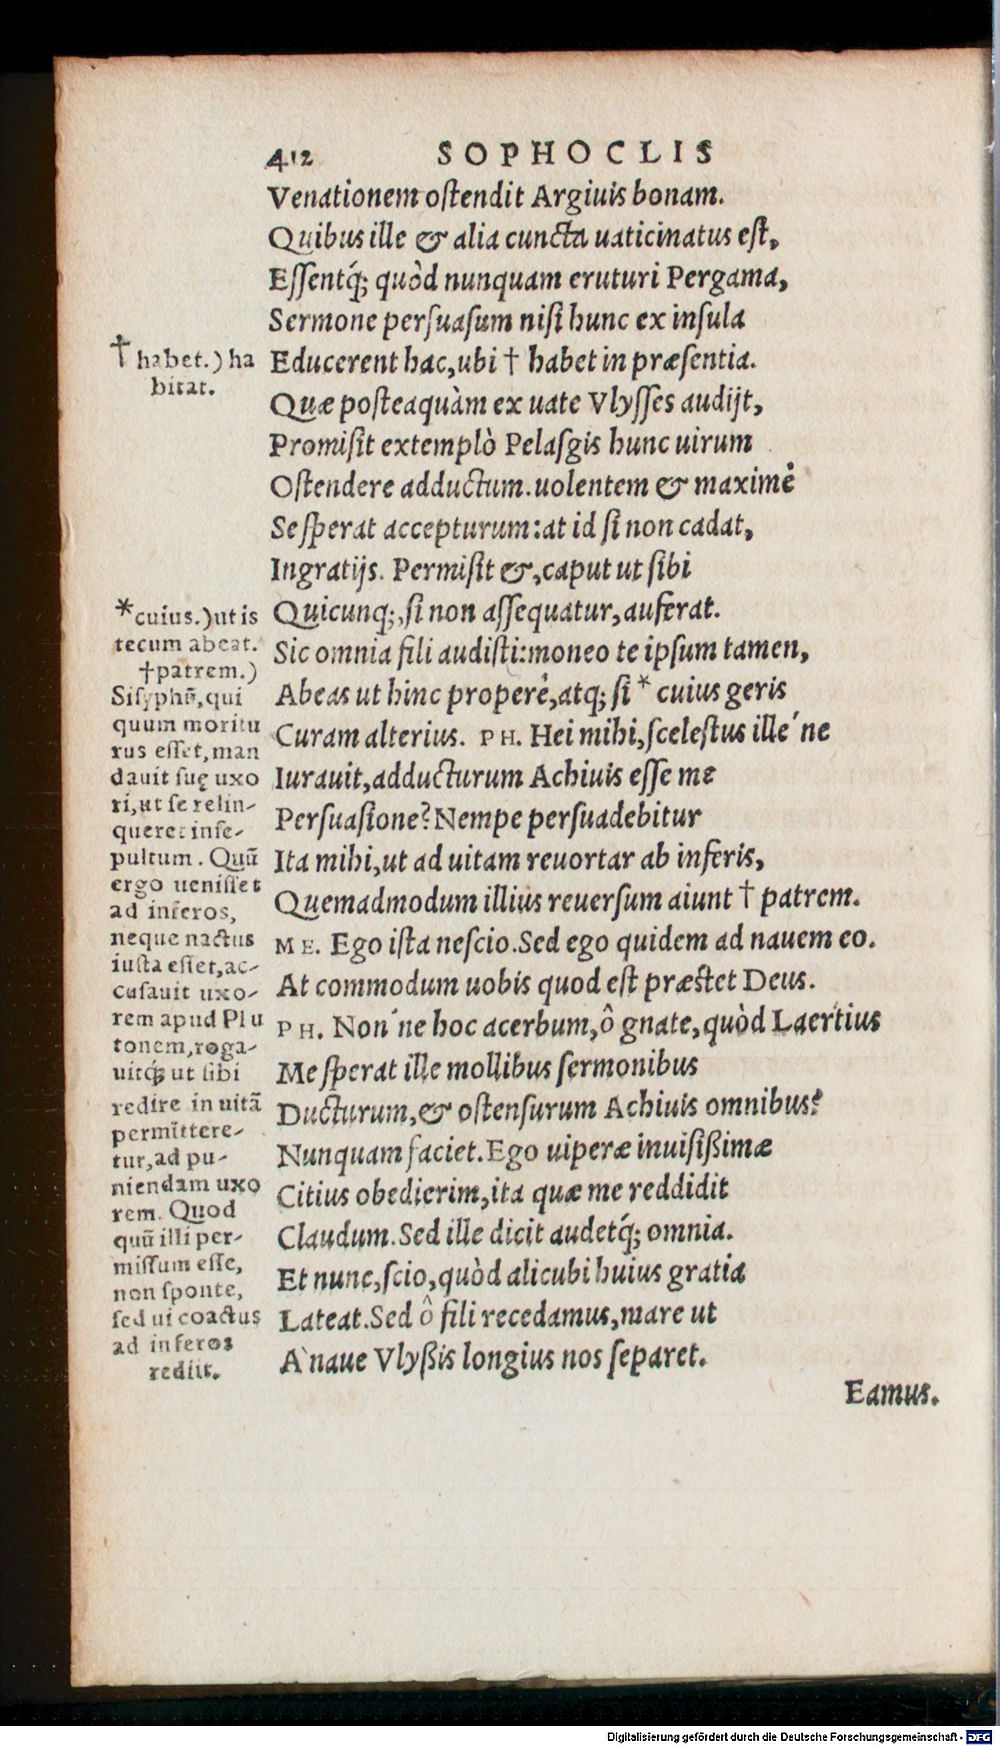 412 SOPHOCLIS
Venationem ostendit Argiuis bonam.
Quibus ille & alia cuncta uaticinatus est,
Essentq́; quòd nunquam eruturi Pergama,
Sermone persuasum nisi hunc ex insula
Educerent hac, ubi † habet in præsentia.
Quæ posteaquàm ex uate Vlysses audijt,
Promisit extemplò Pelasgis hunc uirum
Ostendere adductum. uolentem & maximè
Se sperat accepturum: at id si non cadat,
Ingratijs. Permisit &, caput ut sibi
Quicunq;, si non assequatur, auferat.
Sic omnia fili audisti: moneo te ipsum tamen,
Abeas ut hinc properè, atq; si * cuius geris
Curam alterius. PH. Hei mihi, scelestus ille´ne
Iurauit, adducturum Achiuis esse me
Persuasione? Nempe persuadebitur
Ita mihi, ut ad uitam reuortar ab inferis,
Quemadmodum illius reuersum aiunt † patrem.
ME. Ego ista nescio. Sed ego quidem ad nauem eo.
At commodum uobis quod est præstet Deus.
PH. Non´ne hoc acerbum, ô gnate, quòd Laertius
Me sperat ille mollibus sermonibus
Ducturum, & ostensurum Achiuis omnibus?
Nunquam faciet. Ego uiperæ inuisißimæ
Citius obedierim, ita quæ me reddidit
Claudum. Sed ille dicit audetq́; omnia.
Et nunc, scio, quòd alicubi huius gratia
Lateat. Sed ô fili recedamus, mare ut
A` naue Vlyßis longius nos separet.
Eamus.
† habet.) ha
bitat.
* cuius.) ut is
tecum abeat.
† patrem.)
Sisyphũ, qui
quum moritu
rus esset, man
dauit suę uxo
ri, ut se relin-
queret inse-
pultum. Quũ
ergo uenisset
ad inferos,
neque nactus
iusta esset, ac-
cusauit uxo-
rem apud Plu
tonem, roga-
uitq́; ut sibi
redire in uitã
permittere-
tur, ad pu-
niendam uxo
rem. Quod
quũ illi per-
missum esse,
non sponte,
sed ui coactus
ad inferos
rediit.
Digitalisierung gefördert durch die Deutsche Forschungsgemeinschaft - DFG